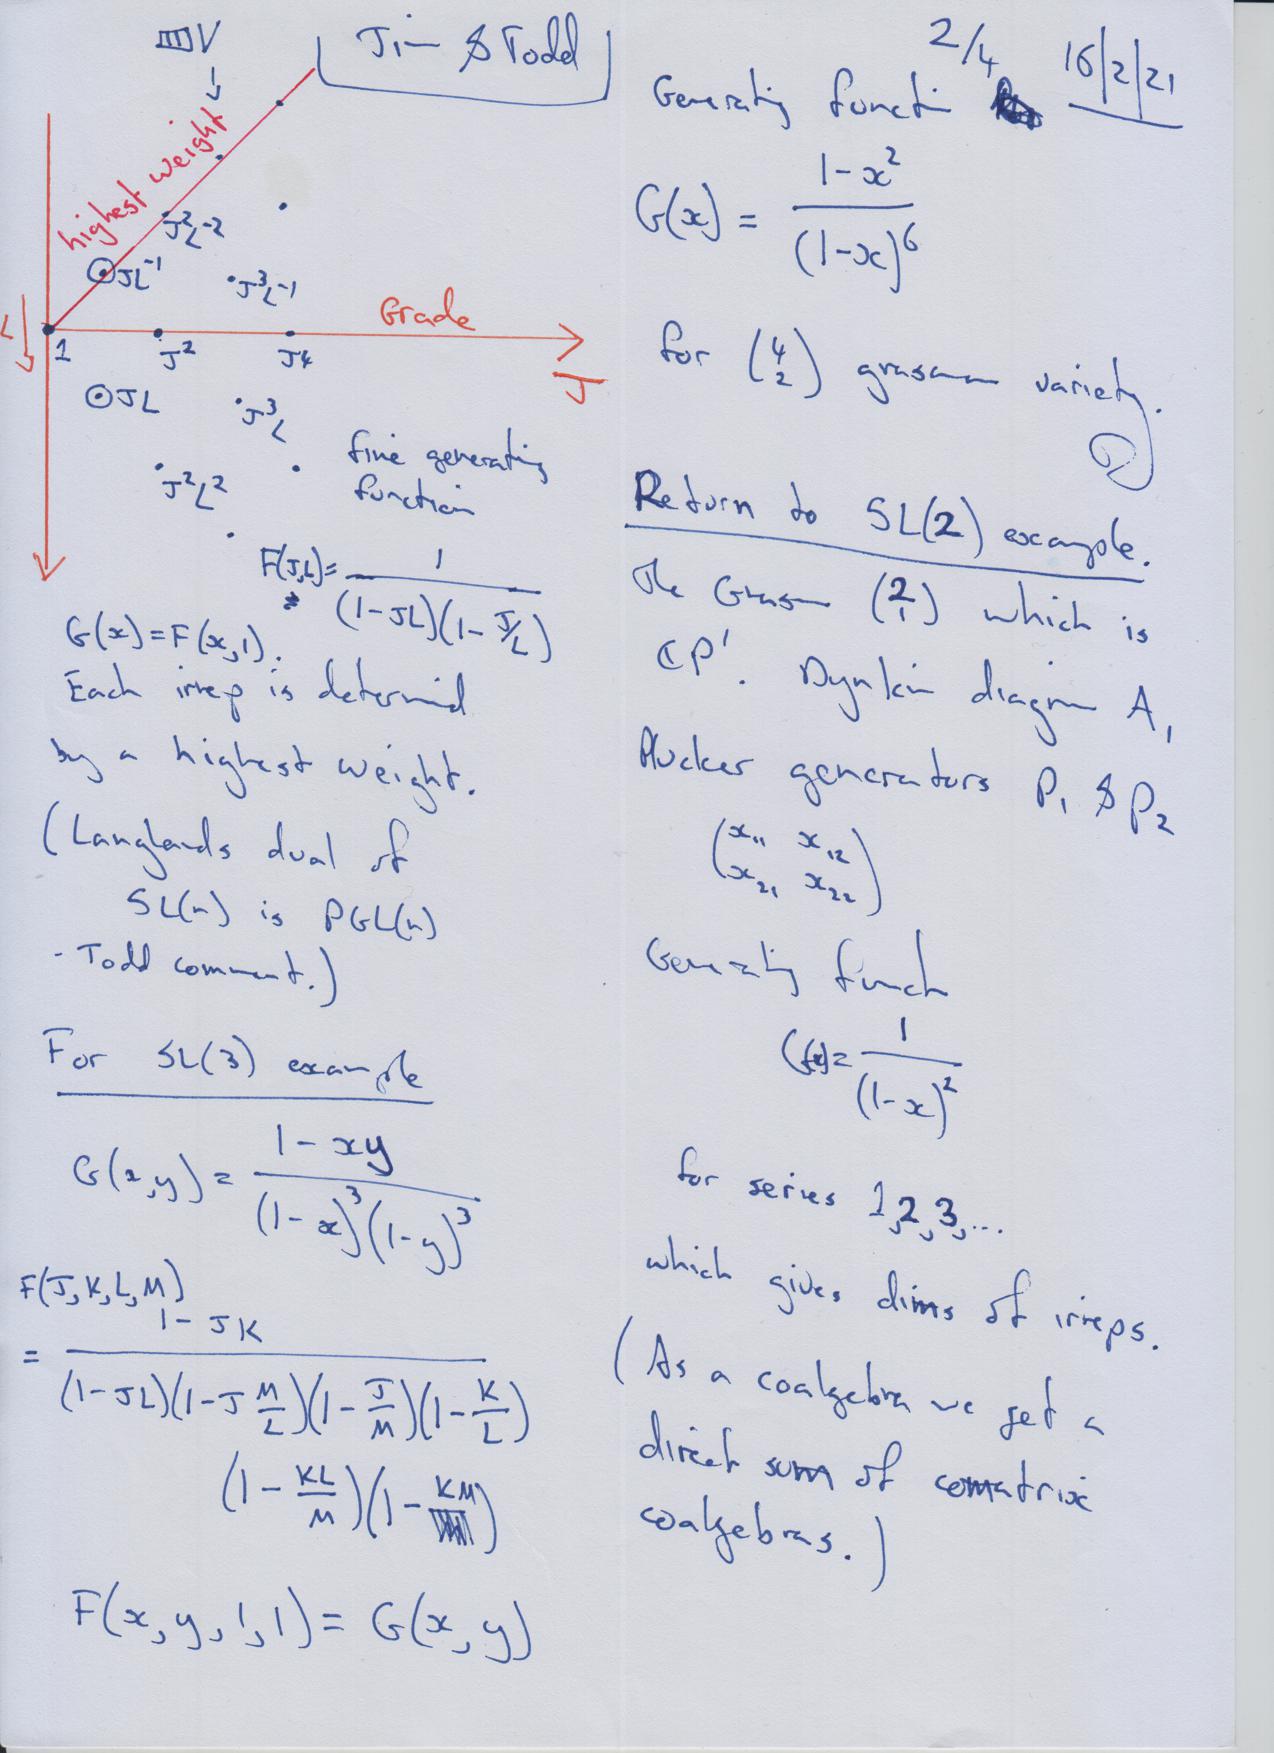 Jim & Todd
2/4
16/2/21
highest weight
J²L⁻²
JL⁻¹
J³L⁻¹
Grade
L
1
J²
J4
J
JL
J³L
J²L²
fine generating
function
F(J,L) = 1 / (1-JL)(1-J/L)
G(x) = F(x,1).
Each irrep is determind
by a highest weight.
(Langlands dual of
SL(n) is PGL(n)
- Todd comment.)
For SL(3) example
G(x,y) = 1-xy / (1-x)³(1-y)³
F(J,K,L,M)
= 1-JK / (1-JL)(1-J M/L)(1-J/M)(1-K/L)
(1-KL/M)(1-KM)
F(x,y,1,1) = G(x,y)
Generating function
G(x) = 1-x² / (1-x)⁶
for (4 2) grassmann variety.
Return to SL(2) example.
The Grassm (2 1) which is
ℂP¹. Dynkin diagram A₁
Plucker generators P₁ & P₂
(x₁₁ x₁₂
x₂₁ x₂₂)
Generating funcn
G(x) = 1 / (1-x)²
for series 1,2,3,...
which gives dims of irreps.
(As a coalgebra we get a
direct sum of comatrix
coalgebras.)